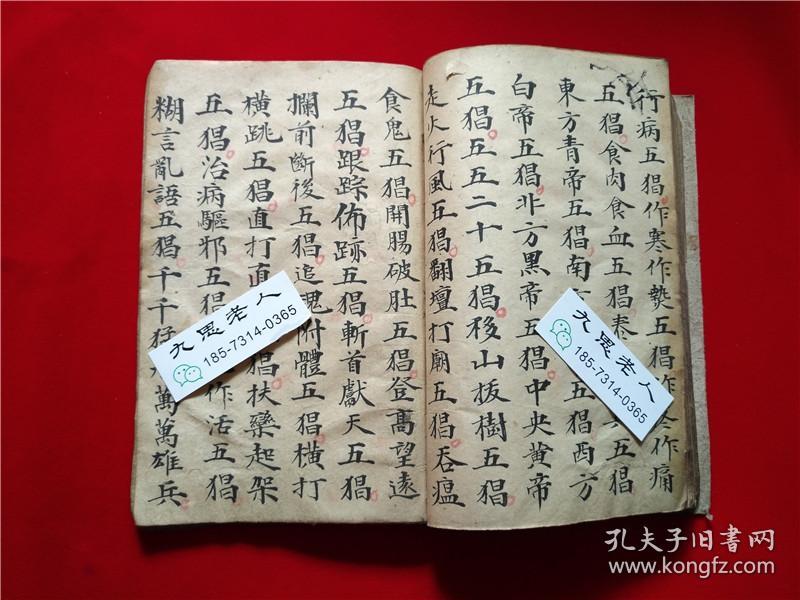 行病五猖作寒作熱五猖作
作痛
五猖食肉食血五猖
五猖
東方青帝五猖南
五猖西方
白帝五猖北方黑帝五猖中央黄帝
五猖五五二十五猖移山拔樹五猖
走火行風五猖翻壇打廟五猖吞瘟
食鬼五猖開腸破肚五猖登高望遠
五猖跟踪佈跡五猖斬首獻天五猖
攔前斷後五猖追魂附體五猖横打
横跳五猖直打直
猖扶欒起架
五猖治病驅邪五猖
作活五猖
糊言亂語五猖千千猛
萬萬雄兵
九思老人
185-7314-0365
九思老人
185-7314-0365
孔夫子旧书网
www.kongfz.com